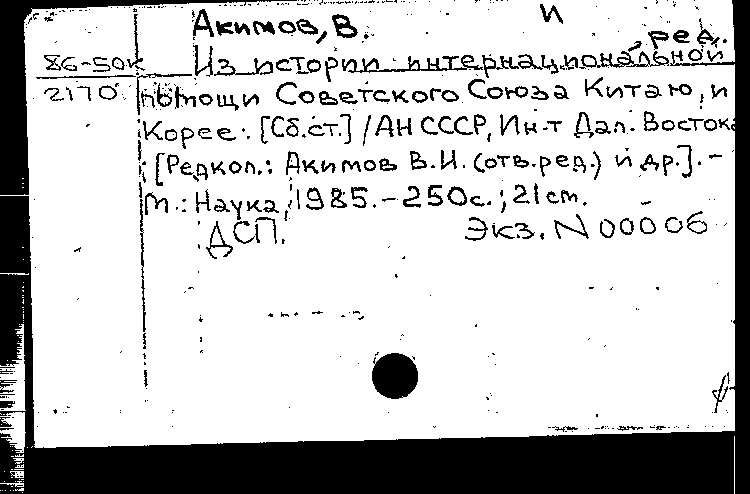 Акимов, В. И , ред.
86-50к Из истории интернациональной
2170 помощи Советского Союза Китаю и
Корее: [Сб.ст.] / АН СССР, Ин-т Дал. Востока
; [Редкол.: Акимов В.И. (отв.ред.) и др.]. –
М.: Наука, 1985. – 250с.; 21 cm.
ДСП. Экз. N 00006